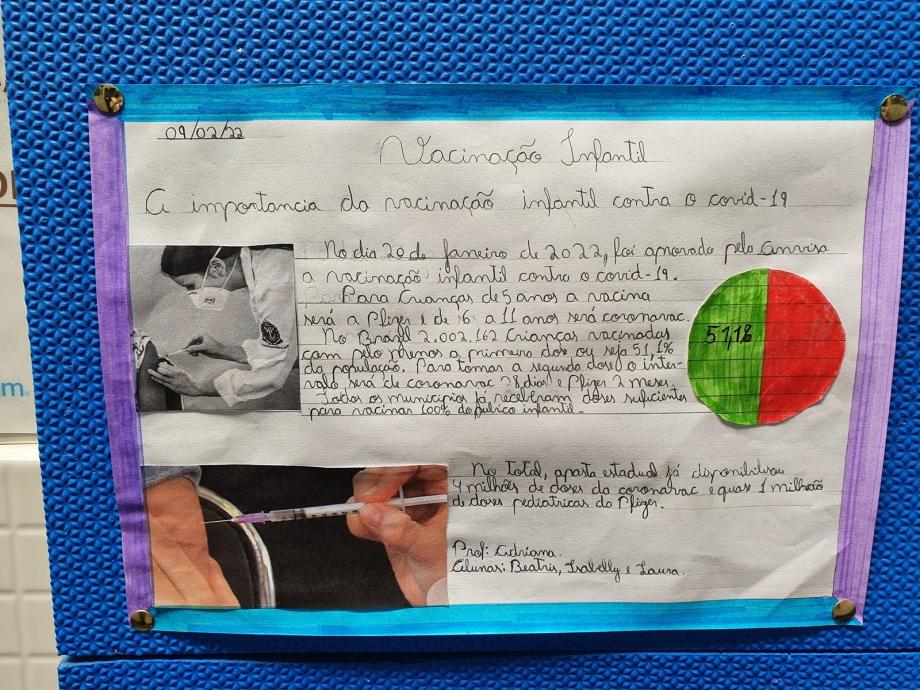 09/02/22
Vacinação Infantil
A importancia da vacinação infantil contra o covid-19
No dia 20 de Janeiro de 2022, foi aprovado pela Anvisa
a vacinação infantil contra o covid-19.
Para Crianças de 5 anos a vacina
será a Pfizer e de 6 a 11 anos será coronavac.
No Brasil 2.002.162 Crianças vacinadas
com pelo menos a primeira dose ou seja 51,1%
da população. Para tomar a segunda dose o inter-
valo será de coronavac 28 dias e Pfizer 2 meses.
Todos os municípios já receberam doses suficientes
para vacinar 100% do público infantil.
51,1%
No total, a pasta estadual já disponibilizou
4 milhões de doses da coronavac e quase 1 milhão
de doses pediatricas da Pfizer.
Prof: Adriana.
Alunas: Beatris, Isabelly e Laura.